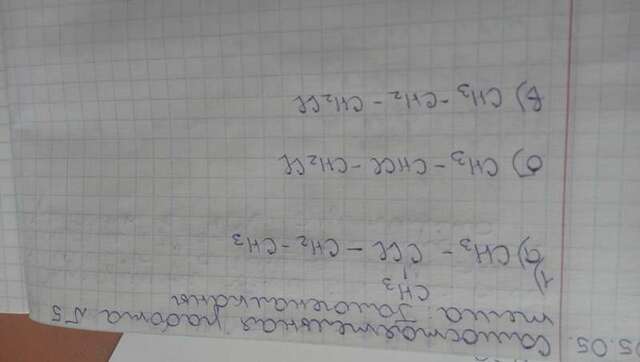 5.05.
Самостоятельная работа №5
тема: Галогеналканы
CH3
1) а) CH3 - CCl - CH2 - CH3
б) CH3 - CHCl - CH2Cl
в) CH3 - CH2 - CH2Cl